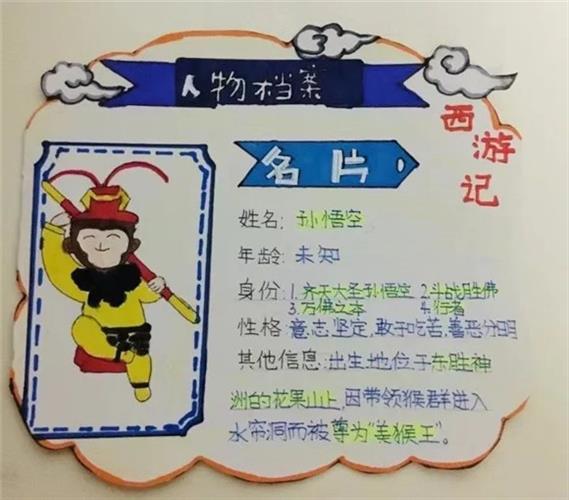 人物档案
西游记
名片
姓名: 孙悟空
年龄: 未知
身份: 1.齐天大圣孙悟空 2.斗战胜佛
3.万佛之本 4.行者
性格: 意志坚定,敢于吃苦,善恶分明
其他信息: 出生地位于东胜神
洲的花果山上,因带领猴群进入
水帘洞而被尊为“美猴王”。